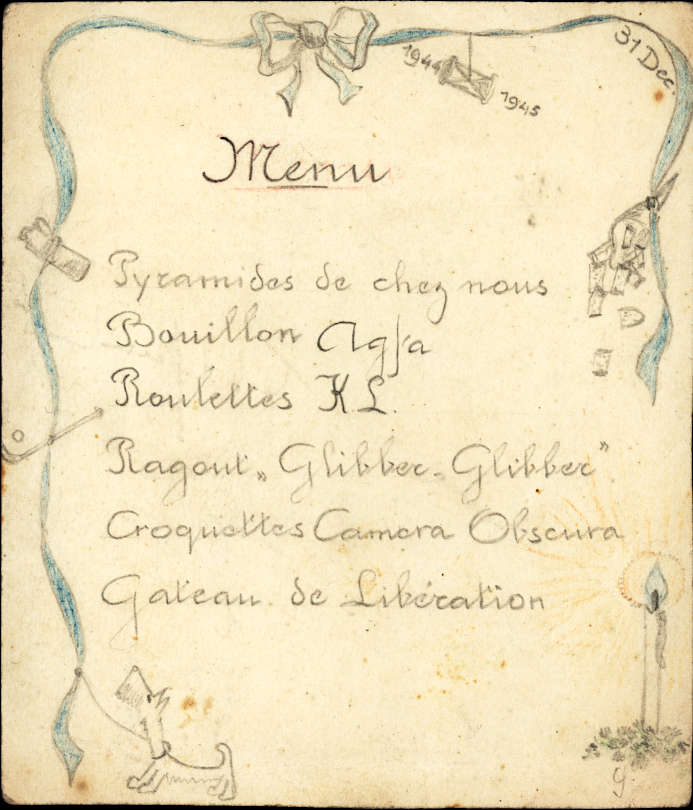 1944
1945
31 Dec.
Menu
Pyramides de chez nous
Bouillon Agfa
Roulettes KL.
Ragout „Glibber-Glibber”
Croquettes Camera Obscura
Gateau de Libération